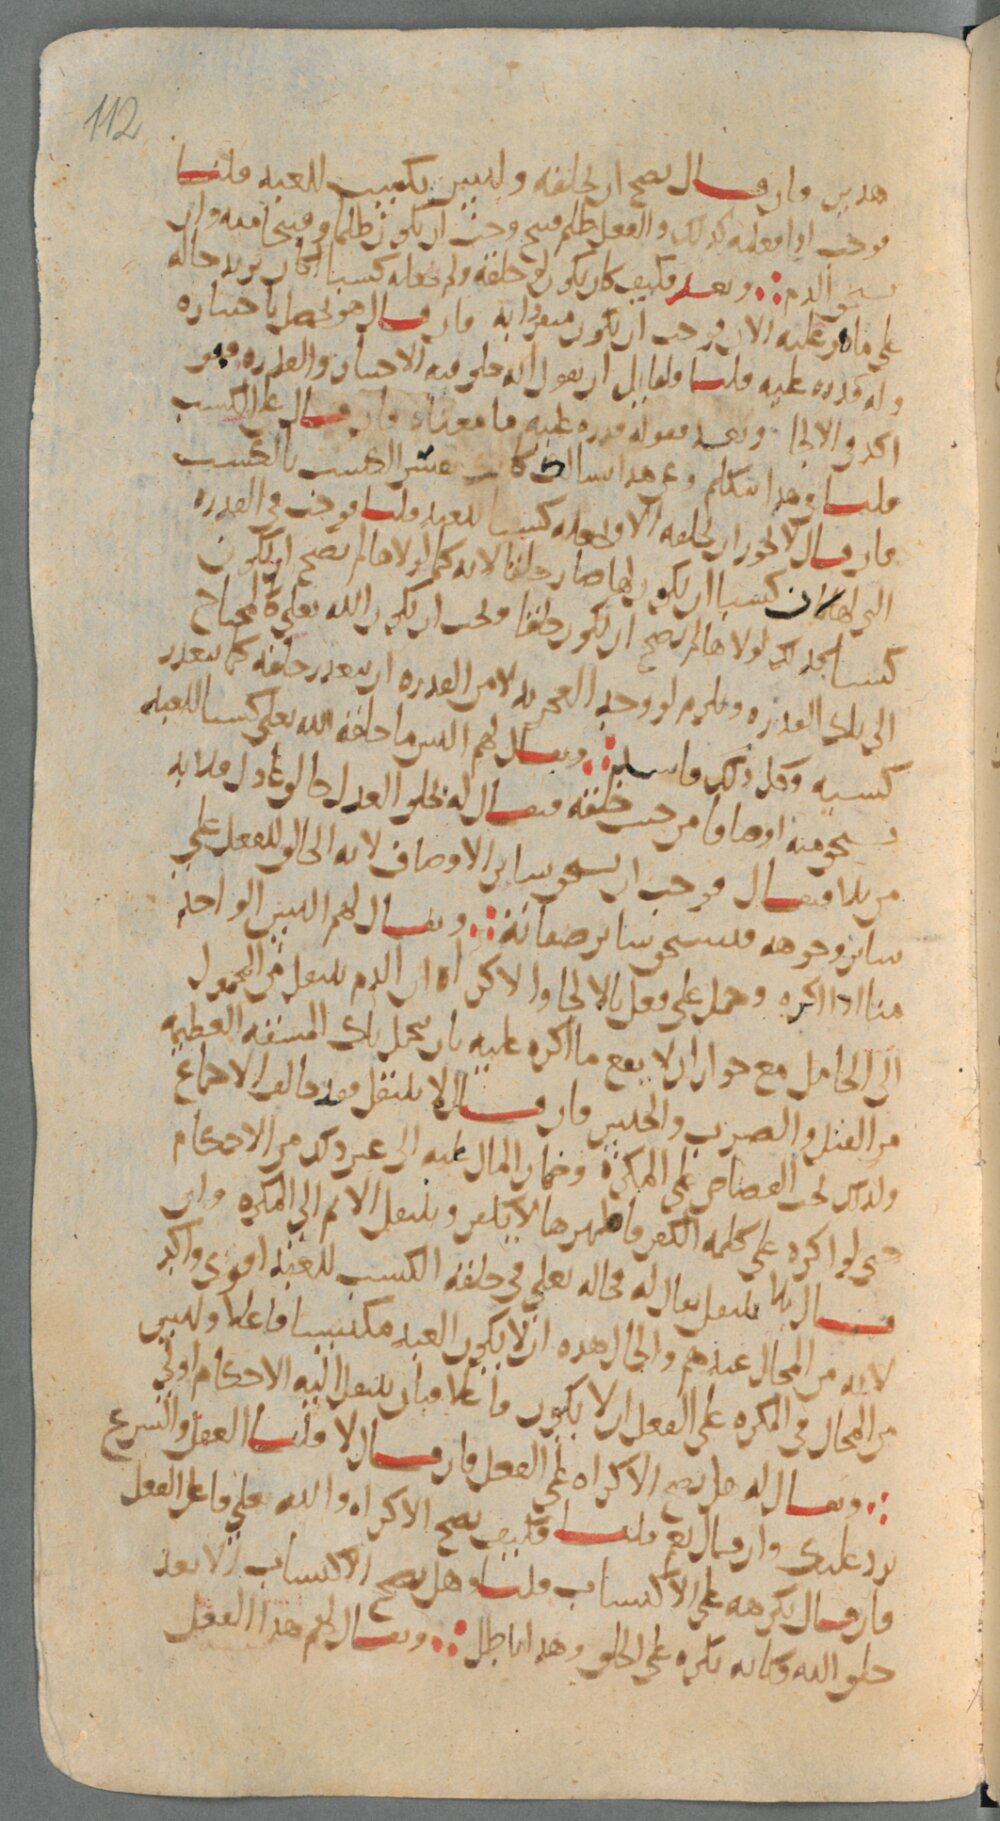 112
هذين وان قال يصح ان يخلقه وليس بكسب للعبد قلنا
فوجب اذا فعله كذلك والفعل ظلم قبيح وجب ان يكون ظالما قبيحا منه وان
يستحق الذم وبعد فكيف كان يكون لو خلقه ولم يجعله كسبا اكان يزيد حاله
على ما هو عليه الان فوجب ان يكون منفردا به فان قال هو يحصل باختياره
وله قدرة عليه قلنا ولقائل ان يقول انه خلق فيه الاختيار والقدرة فهو
اكد في الالجا وبعد فقوله قدره عليه ما معناه فان قال على الكسب
قلنا في هذا نتكلم وعن هذا سالناك تفسر الكسب بالكسب
فان قال لا يجوز ان يخلقه الا ويجعله كسبا للعبد قلنا فوجب في القدرة
التي لها كان كسبا ان يكون لها صار خلقا لانه كما لولاها لم يصح ان يكون
كسبا كذلك لولاها لم يصح ان يكون خلقا ويجب ان يكون الله تعلى محتاج
الى تلك القدرة ويلزم لو وجد العجز بدلا من القدرة ان يتعذر خلقه كما يتعذر
كسبه وكل ذلك فاسد ويقال لهم اليس ما خلقه الله تعلى كسبا للعبد
يستحق منه اوصافا من حيث خلقه فيقال له بخلق العدل خالق عادل فلا بد
من بلا فيقال فوجب ان يستحق ساير الاوصاف لانه الخالق للفعل على
ساير وجوهه فيستحق ساير صفاته ويقال لهم اليس الواحد
منا اذا اكره وحمل على فعل بالالجا والاكراه ان الذم ينتقل من المحمول
الى الحامل مع جواز ان لا يقع ما اكره عليه بان يتحمل تلك المشقه العظيمه
من القتل والضرب والحبس فان قال لا ينتقل فقد خالف الاجماع
ولذلك يجب القصاص على المكره وضمان المال عليه الى غير ذلك من الاحكام
حتى لو اكره على كلمه الكفر فاظهرها لا يكفر وينتقل الاثم الى المكره وان
قال بلا ينتقل يقال له فحاله تعلى في خلقه الكسب للعبد اقوى واكد
لانه من المحال عندهم والحال هذه ان لا يكون العبد مكتسبا فاعلا وليس
من المحال في المكره على الفعل ان لا يكون فاعلا فبان ينتقل اليه الاحكام اولى
ويقال له هل يصح الاكراه على الفعل فان قال لا قلنا العقل والشرع
يرد عليك وان قال نعم قلنا فكيف يصح الاكراه والله تعلى فاعل الفعل
فان قال يكرهه على الاكتساب قلنا وهل يصح الاكتساب الا بعد
خلق الله وكانه يكره على الخلق وهذا باطل ويقال لهم هذا الفعل